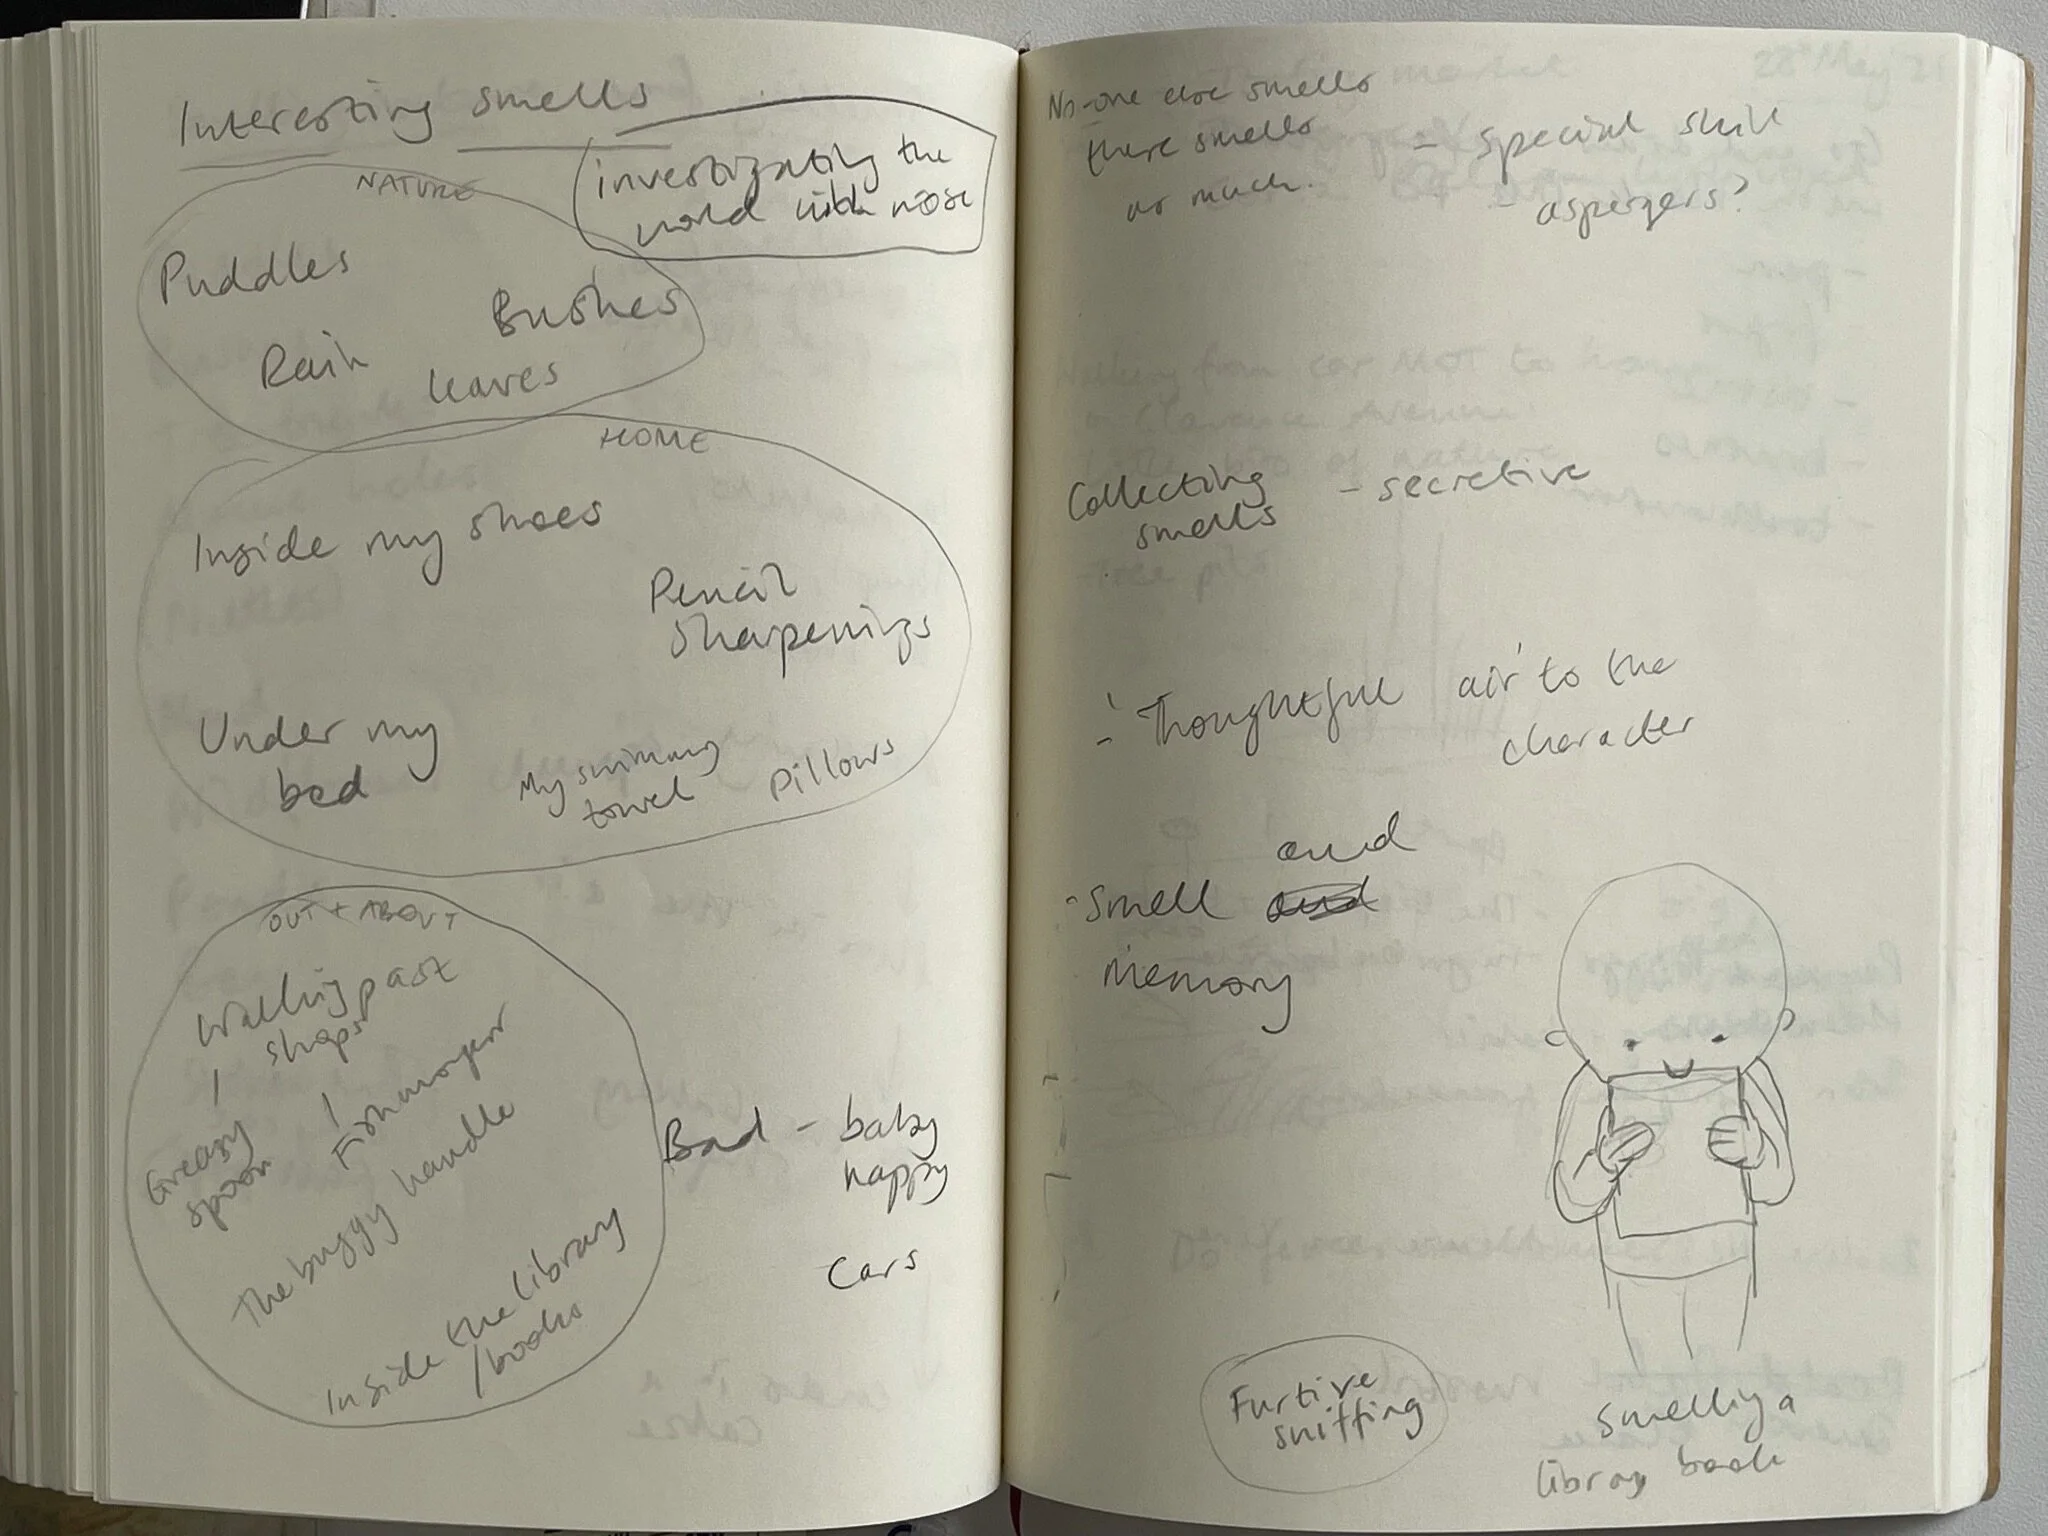 Interesting smells
investigating the
world with nose
NATURE
Puddles
Bushes
Rain
leaves
HOME
Inside my shoes
Pencil
sharpenings
Under my
bed
My swimming
towel
pillows
OUT + ABOUT
Walking past
shops
Greasy
spoon
Fishmonger
The buggy handle
Inside the library
/books
Bad - baby
nappy
Cars
No-one else smells
there smells
as much.
= special skill
aspergers?
Collecting
smells
- secretive
- 'Thoughtful air' to the
character
and
- Smell
memory
Furtive
sniffing
smelling a
library book